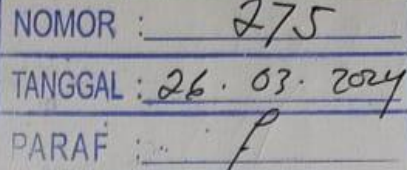 NOMOR : 275
TANGGAL : 26 . 03 . 2024
PARAF :